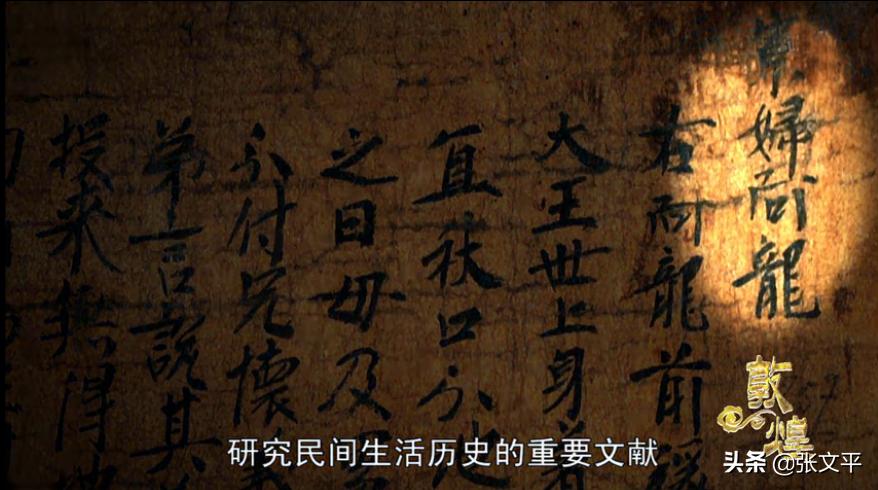 婦阿龍
右阿龍前緣
大王世上身着
直秋口分地
之日母及
分付兄懷
弟言說其
投来無得
敦煌
研究民间生活历史的重要文献
头条 @张文平